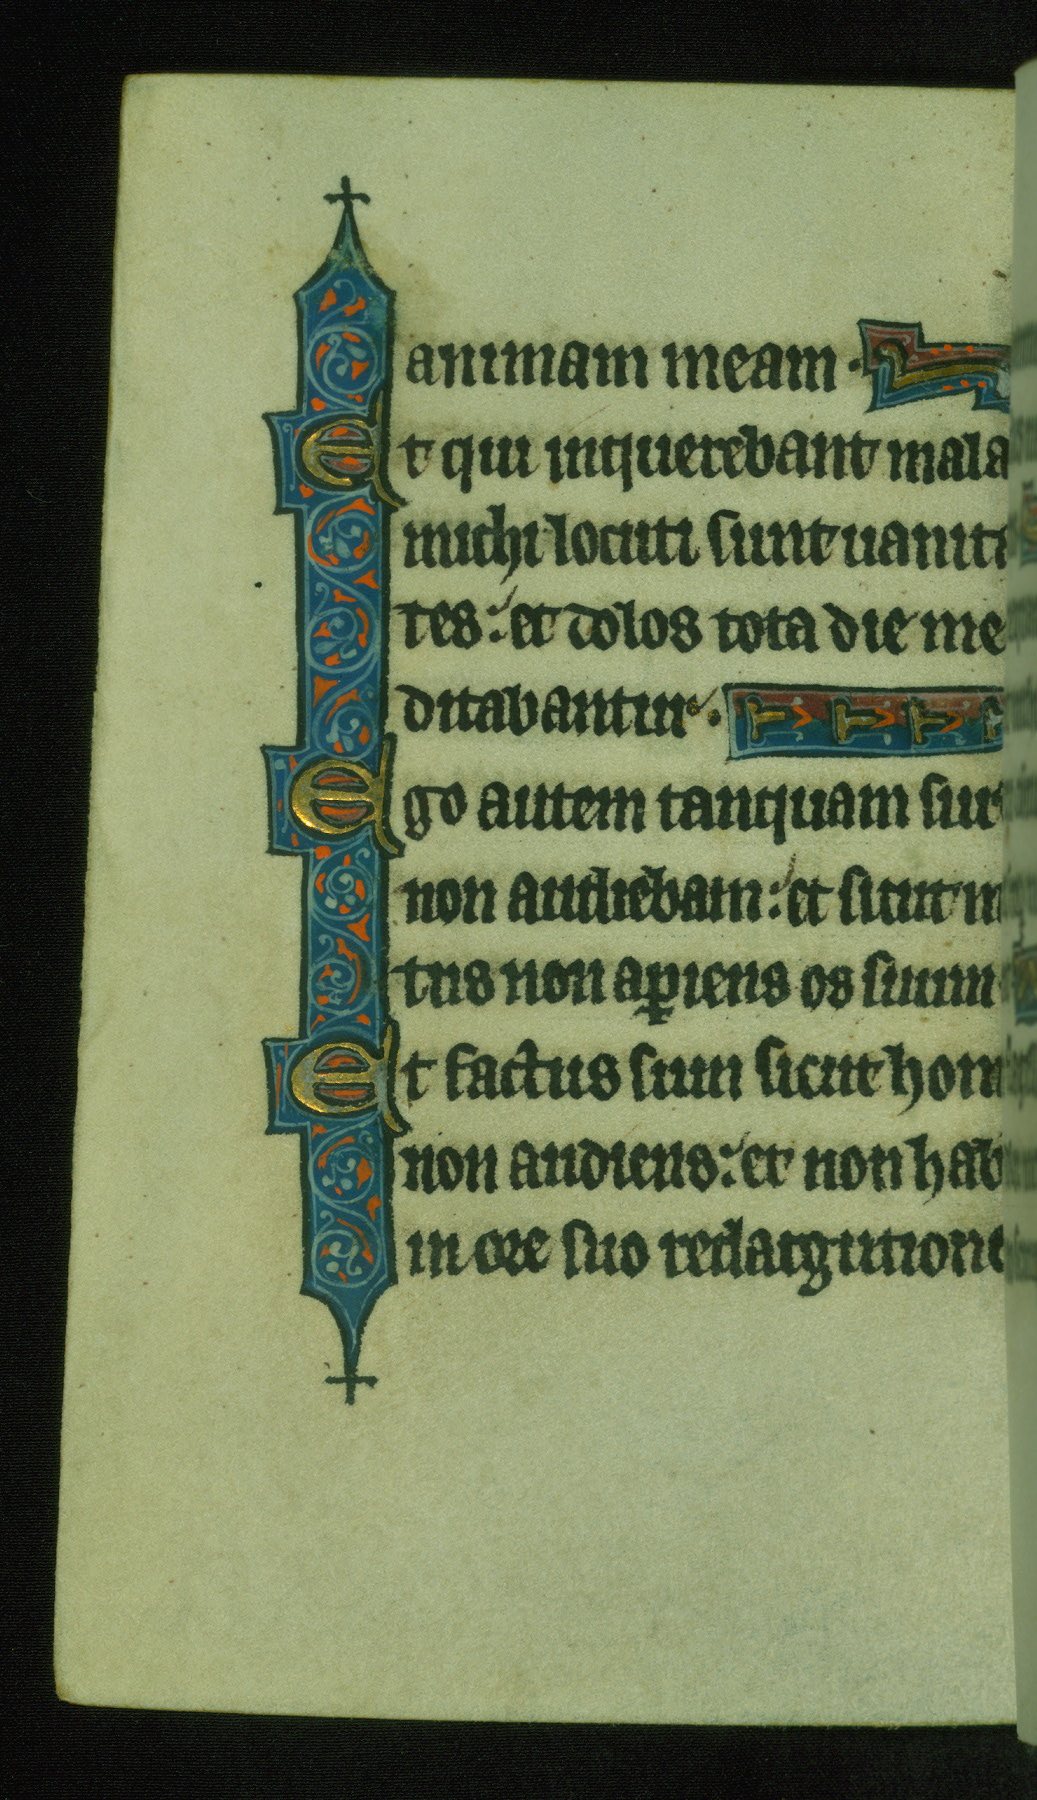 animam meam ·
Et qui inquerebant mala
michi locuti sunt uanita
tes: et dolos tota die me
ditabantur ·
Ego autem tanquam sur
non audiebam: et sicut m
tus non apiens os suum
Et factus sum sicut hom
non audiens: et non hab
in ore suo redargutione